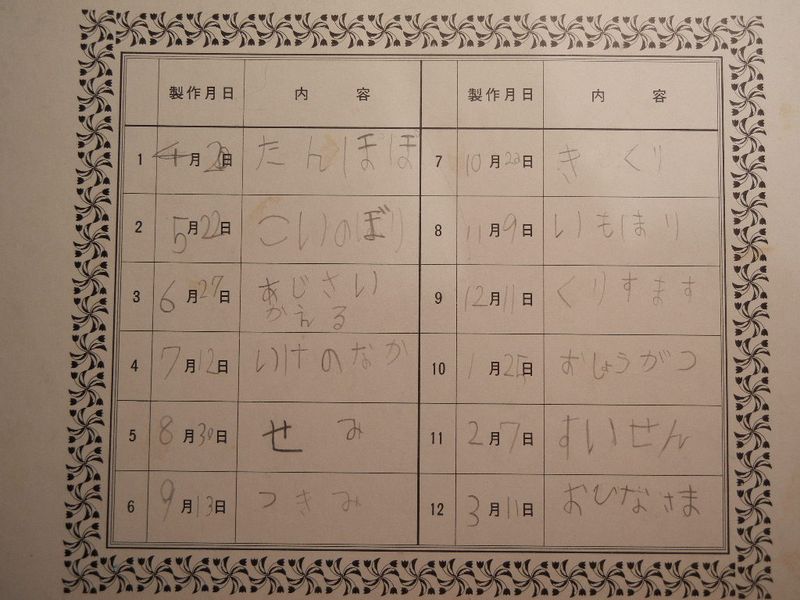 製作月日 内容 製作月日 内容
1 4月20日 たんぽぽ
2 5月22日 こいのぼり
3 6月27日 あじさい
かえる
4 7月12日 いけのなか
5 8月30日 せみ
6 9月13日 つきみ
7 10月20日 きくり
8 11月9日 いもほり
9 12月11日 くりすます
10 1月25日 おしょうがつ
11 2月7日 すいせん
12 3月11日 おひなさま